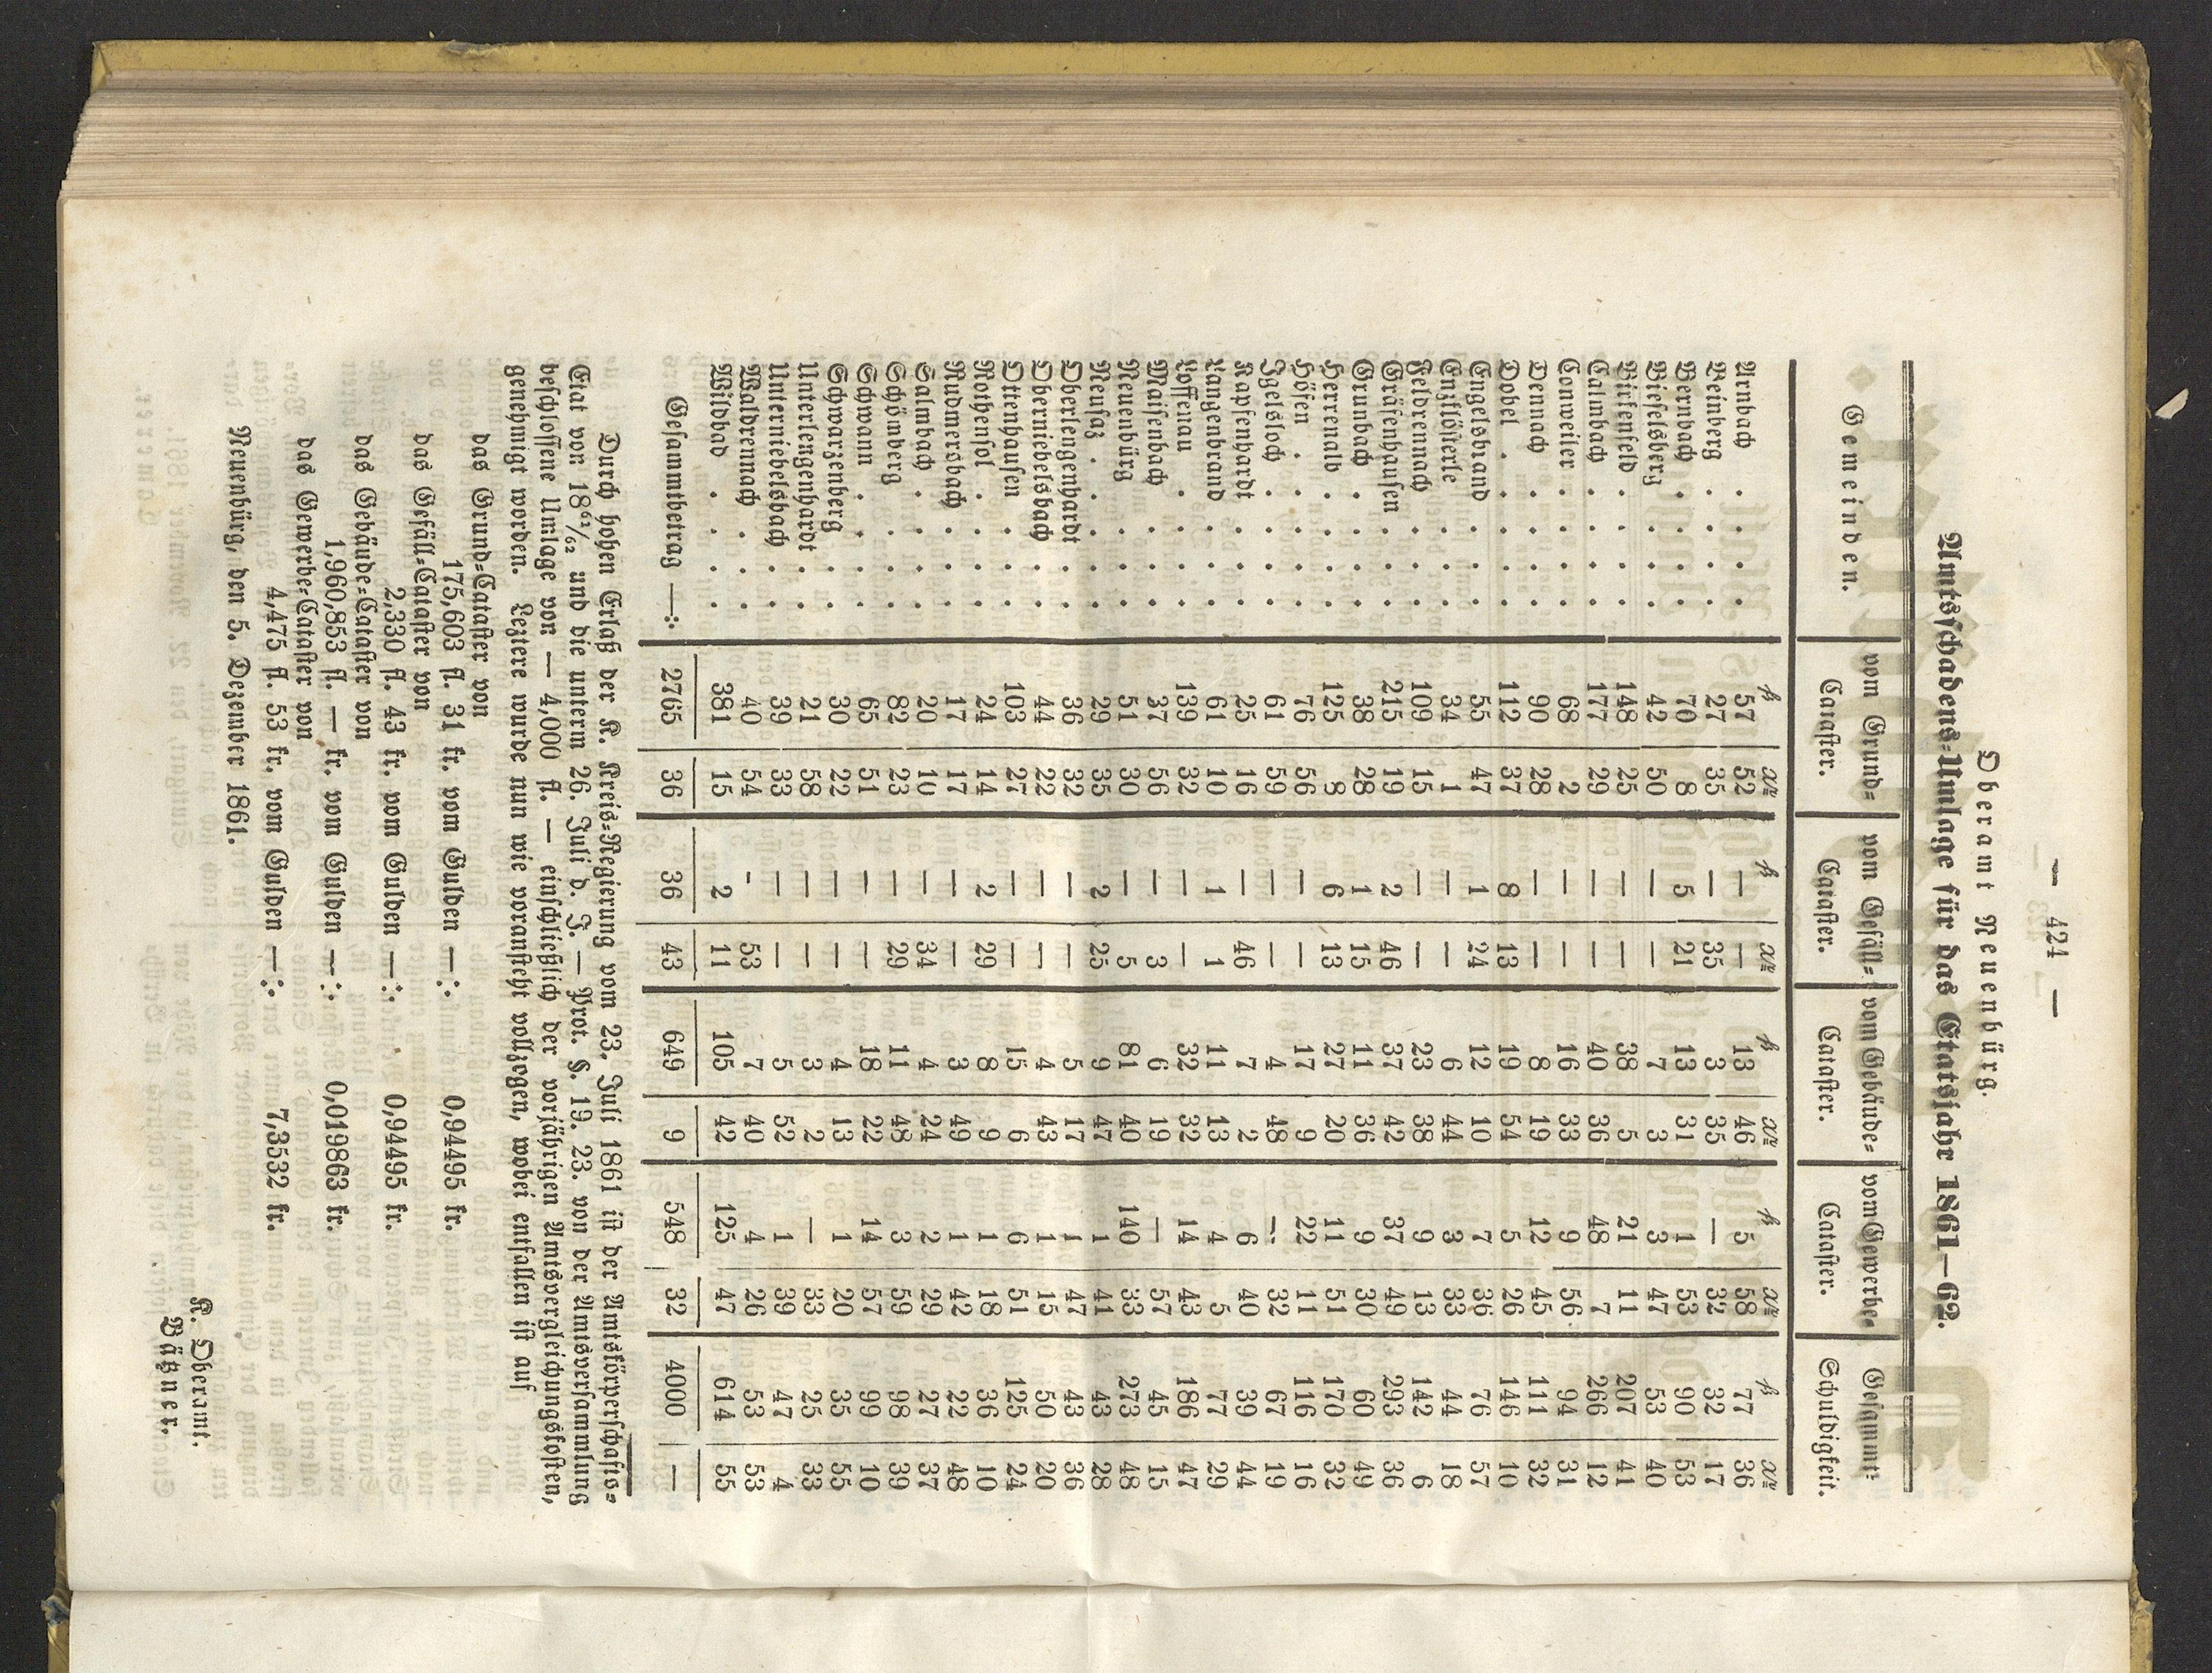 — 424 —
Oberamt Neuenbürg.
Amtsschadens-Umlage für das Etatsjahr 1861—62.
Gemeinden. | vom Grund-Cataster. | vom Gefäll-Cataster. | vom Gebäude-Cataster. | vom Gewerbe-Cataster. | Gesammt-Schuldigkeit.
fl xr fl xr fl xr fl xr fl xr
Arnbach . . . . 57 52 — — 13 46 5 58 77 36
Beinberg . . . . 27 35 — 35 3 35 — 32 32 17
Bernbach . . . . 70 8 5 21 13 31 1 53 90 53
Bieselsberg . . . 42 50 — — 7 3 3 47 53 40
Birkenfeld . . . . 148 25 — — 38 5 21 11 207 41
Calmbach . . . . 177 29 — — 40 36 48 7 266 12
Conweiler . . . . 68 2 — — 16 33 9 56 94 31
Dennach . . . . 90 28 — — 8 19 12 45 111 32
Dobel . . . . . 112 37 8 13 19 54 5 26 146 10
Engelsbrand . . . 55 47 1 24 12 10 7 36 76 57
Enzklösterle . . . 34 1 — — 6 44 3 33 44 18
Feldrennach . . . 109 15 — — 23 38 9 13 142 6
Gräfenhausen . . . 215 19 2 46 37 42 37 49 293 36
Grunbach . . . . 38 28 1 15 11 36 9 30 60 49
Herrenalb . . . . 125 8 6 13 27 20 11 51 170 32
Höfen . . . . . 76 56 — — 17 9 22 11 116 16
Igelsloch . . . . 61 59 — — 4 48 — 32 67 19
Kapfenhardt . . . 25 16 — 46 7 2 6 40 39 44
Langenbrand . . . 61 10 1 1 11 13 4 5 77 29
Loffenau . . . . 139 32 — — 32 32 14 43 186 47
Maisenbach . . . 37 56 — 3 6 19 — 57 45 15
Neuenbürg . . . . 51 30 — 5 81 40 140 33 273 48
Neusatz . . . . . 29 35 2 25 9 47 1 41 43 28
Oberlengenhardt . . 36 32 — — 5 17 1 47 43 36
Oberniebelsbach . . 44 22 — — 4 43 1 15 50 20
Ottenhausen . . . 103 27 — — 15 6 6 51 125 24
Rothensol . . . . 24 14 2 29 8 9 1 18 36 10
Rudmersbach . . . 17 17 — — 3 49 1 42 22 48
Salmbach . . . . 20 10 — 34 4 24 2 29 27 37
Schömberg . . . . 82 23 — 29 11 48 3 59 98 39
Schwann . . . . 65 51 — — 18 22 14 57 99 10
Schwarzenberg . . 30 22 — — 4 13 1 20 35 55
Unterlengenhardt . . 21 58 — — 3 2 — 33 25 33
Unterniebelsbach . . 39 33 — — 5 52 1 39 47 4
Waldrennach . . . 40 54 — 53 7 40 4 26 53 53
Wildbad . . . . 381 15 2 11 105 42 125 47 614 55
Gesammtbetrag —:. 2765 36 36 43 649 9 548 32 4000 —
Durch hohen Erlaß der K. Kreis-Regierung vom 23. Juli 1861 ist der Amtskörperschafts-
Etat von 18⁶¹/₆₂ und die unterm 26. Juli d. J. — Prot. §. 19. 23. von der Amtsversammlung
beschlossene Umlage von — 4,000 fl. — einschließlich der vorjährigen Amtsvergleichungskosten,
genehmigt worden. Leztere wurde nun wie voransteht vollzogen, wobei entfallen ist auf
das Grund-Cataster von
175,603 fl. 31 kr. vom Gulden —:. 0,94495 kr.
das Gefäll-Cataster von
2,330 fl. 43 kr. vom Gulden —:. 0,94495 kr.
das Gebäude-Cataster von
1,960,853 fl. — kr. vom Gulden —:. 0,019863 kr.
das Gewerbe-Cataster von
4,475 fl. 53 kr. vom Gulden —:. 7,3532 kr.
Neuenbürg, den 5. Dezember 1861.
K. Oberamt.
Bätzner.